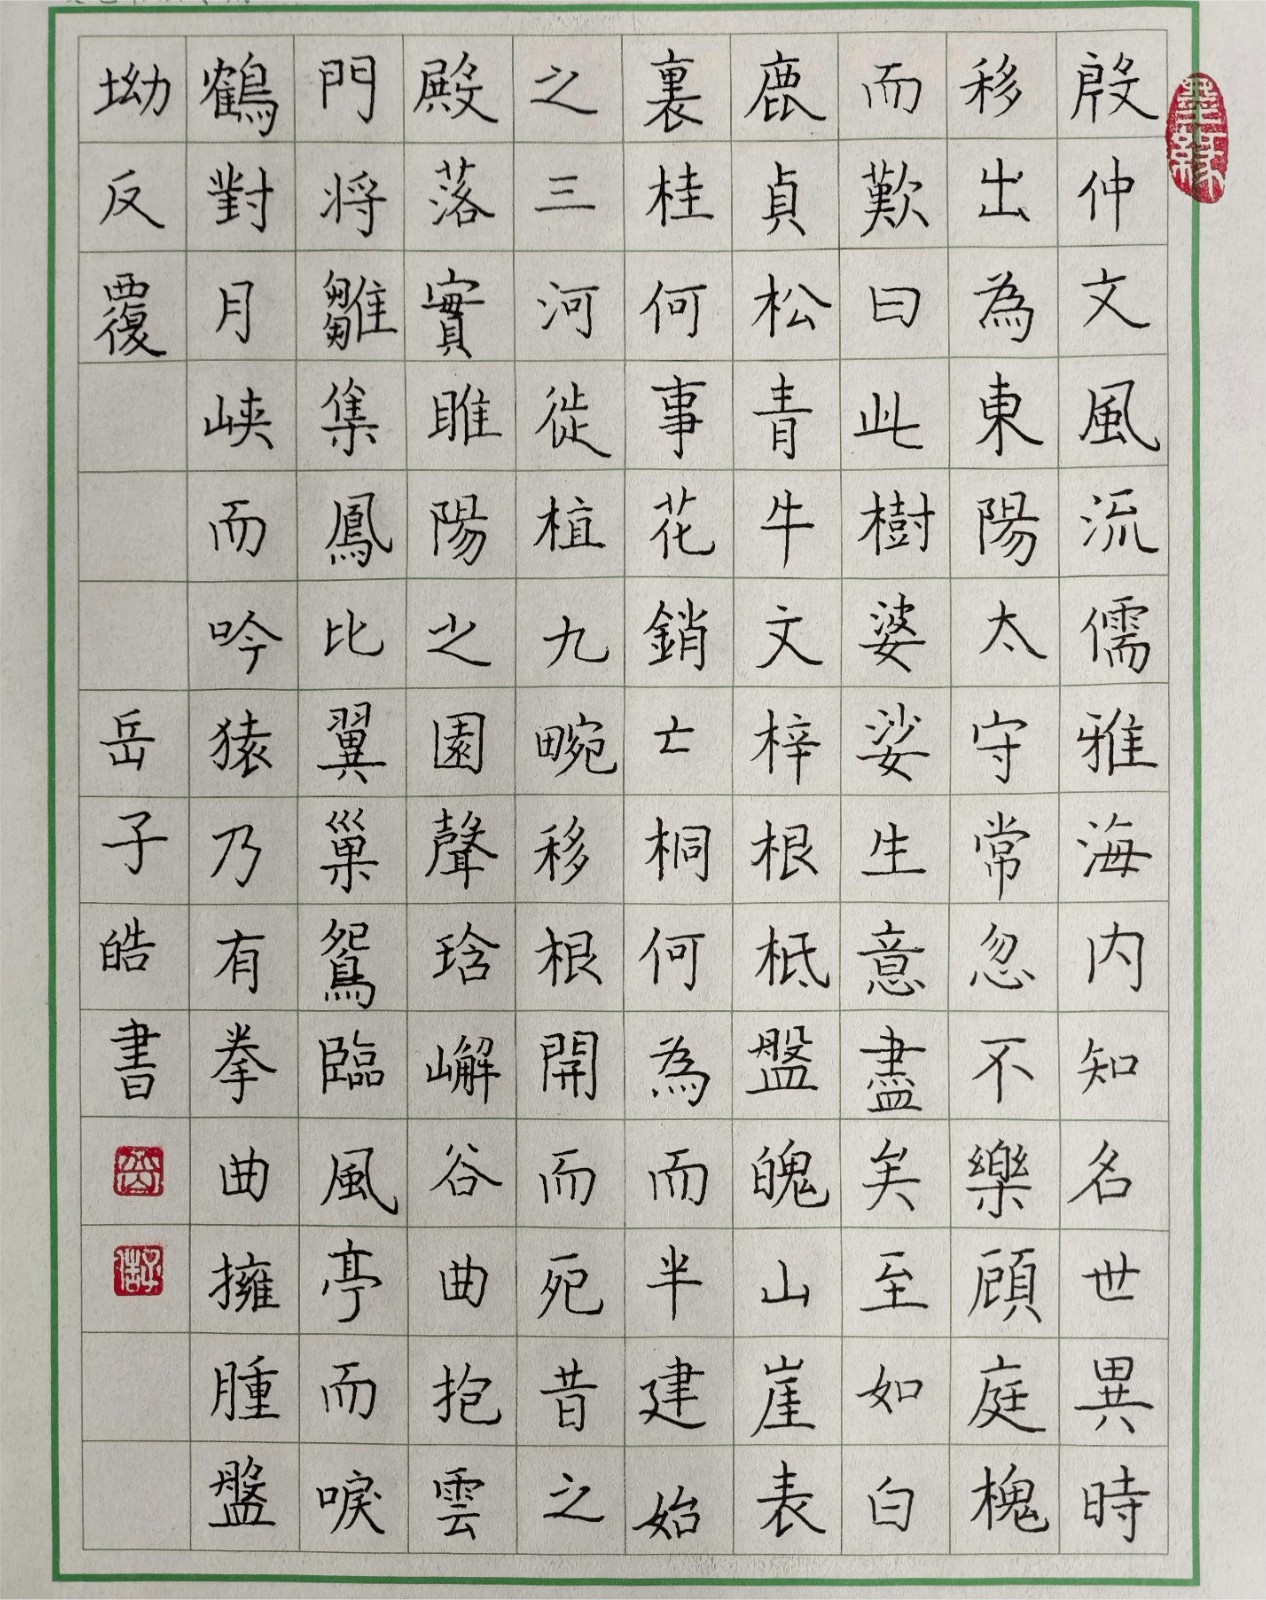 墨緣
殷仲文風流儒雅海内知名世異時
移出為東陽太守常忽不樂顧庭槐
而歎曰此樹婆娑生意盡矣至如白
鹿貞松青牛文梓根柢盤魄山崖表
裏桂何事花銷亡桐何為而半建始
之三河徙植九畹移根開而死昔之
殿落實睢陽之園聲琀嶰谷曲抱雲
門将雛集鳳比翼巢鴛臨風亭而唳
鶴對月峽而吟猿乃有拳曲擁腫盤
坳反覆
岳子皓書